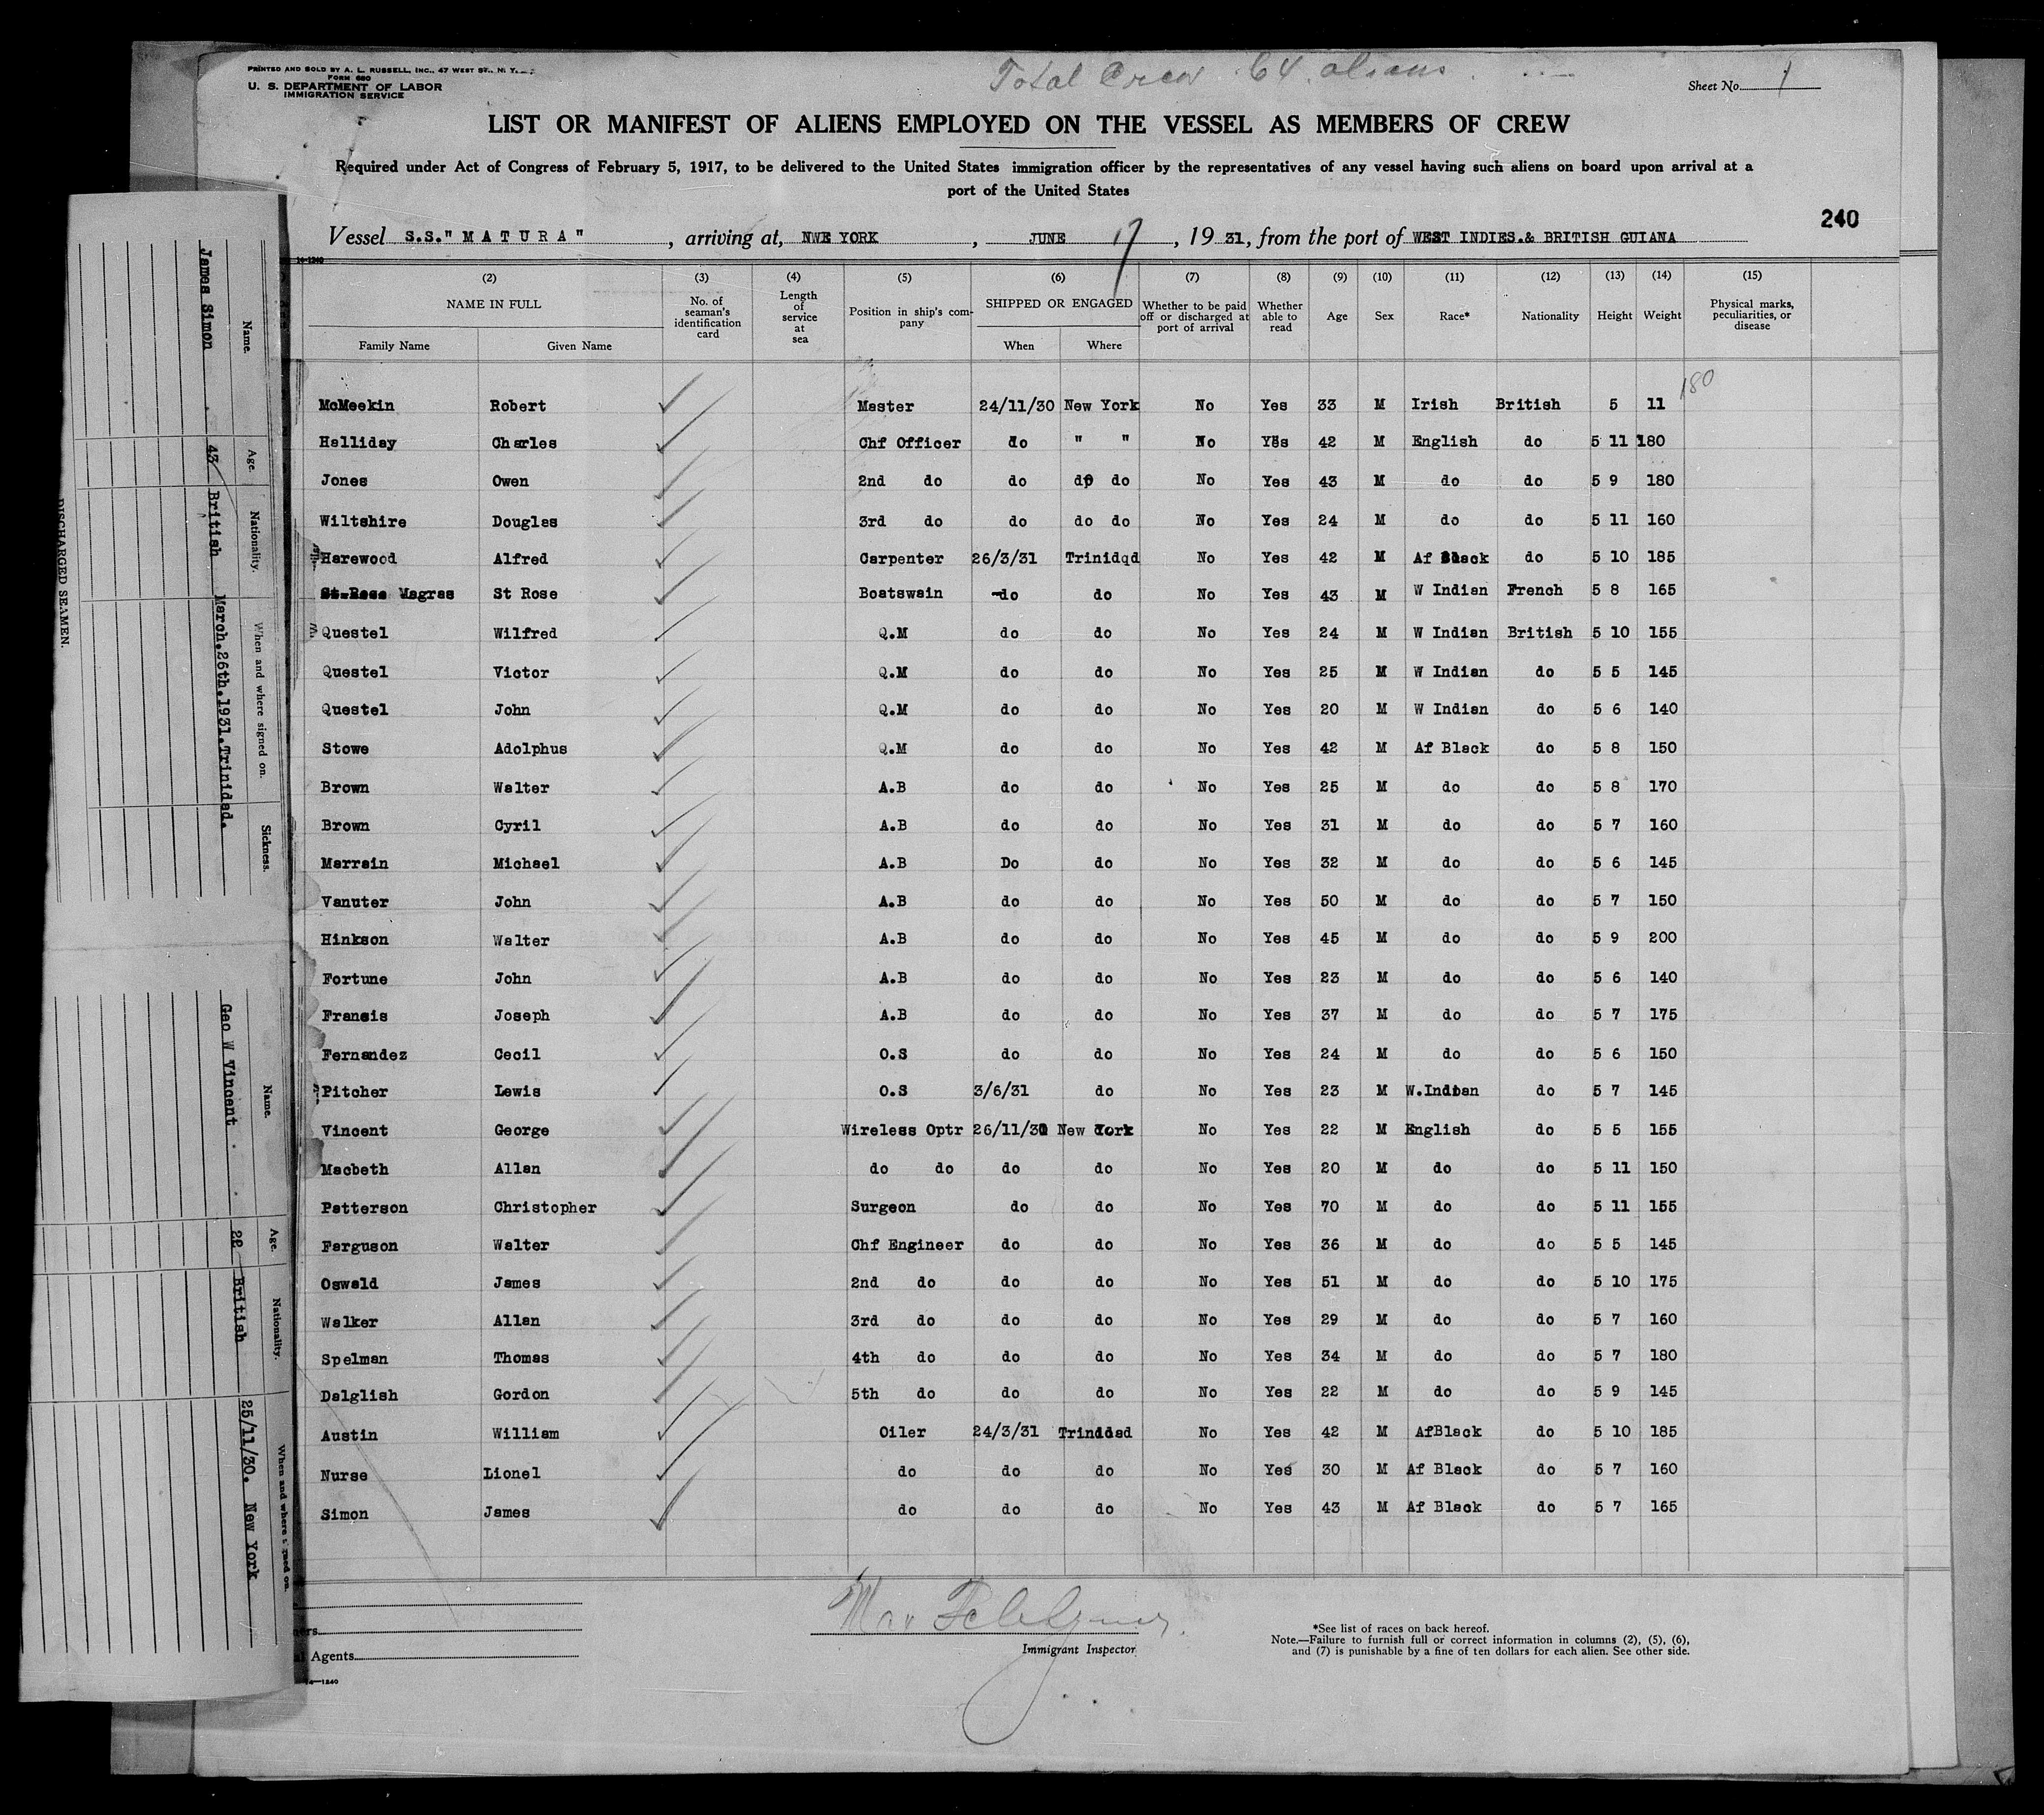 PRINTED AND SOLD BY A. L. RUSSELL, INC., 47 WEST ST., N. Y.
FORM 680
U. S. DEPARTMENT OF LABOR
IMMIGRATION SERVICE
Total Crew 64 aliens
Sheet No. 1
LIST OR MANIFEST OF ALIENS EMPLOYED ON THE VESSEL AS MEMBERS OF CREW
Required under Act of Congress of February 5, 1917, to be delivered to the United States immigration officer by the representatives of any vessel having such aliens on board upon arrival at a
port of the United States
240
Vessel S.S." M A T U R A " , arriving at, NWE YORK , JUNE 17 , 19 31, from the port of WEST INDIES.& BRITISH GUIANA
14-1240
(2) (3) (4) (5) (6) (7) (8) (9) (10) (11) (12) (13) (14) (15)
NAME IN FULL No. of seaman's identification card Length of service at sea Position in ship's company SHIPPED OR ENGAGED Whether to be paid off or discharged at port of arrival Whether able to read Age Sex Race* Nationality Height Weight Physical marks, peculiarities, or disease
Family Name Given Name When Where
180
McMeekin Robert Master 24/11/30 New York No Yes 33 M Irish British 5 11
Halliday Charles Chf Officer do " " No Yes 42 M English do 5 11 180
Jones Owen 2nd do do do do No Yes 43 M do do 5 9 180
Wiltshire Douglas 3rd do do do do No Yes 24 M do do 5 11 160
Harewood Alfred Carpenter 26/3/31 Trinidqd No Yes 42 M Af Black do 5 10 185
St Rose Magras St Rose Boatswain do do No Yes 43 M W Indian French 5 8 165
Questel Wilfred Q.M do do No Yes 24 M W Indian British 5 10 155
Questel Victor Q.M do do No Yes 25 M W Indian do 5 5 145
Questel John Q.M do do No Yes 20 M W Indian do 5 6 140
Stowe Adolphus Q.M do do No Yes 42 M Af Black do 5 8 150
Brown Walter A.B do do No Yes 25 M do do 5 8 170
Brown Cyril A.B do do No Yes 31 M do do 5 7 160
Marrain Michael A.B Do do No Yes 32 M do do 5 6 145
Vanuter John A.B do do No Yes 50 M do do 5 7 150
Hinkson Walter A.B do do No Yes 45 M do do 5 9 200
Fortune John A.B do do No Yes 23 M do do 5 6 140
Francis Joseph A.B do do No Yes 37 M do do 5 7 175
Fernandez Cecil O.S do do No Yes 24 M do do 5 6 150
Pitcher Lewis O.S 3/6/31 do No Yes 23 M W.Indian do 5 7 145
Vincent George Wireless Optr 26/11/30 New York No Yes 22 M English do 5 5 155
Macbeth Allan do do do do No Yes 20 M do do 5 11 150
Patterson Christopher Surgeon do do No Yes 70 M do do 5 11 155
Farguson Walter Chf Engineer do do No Yes 36 M do do 5 5 145
Oswald James 2nd do do do No Yes 51 M do do 5 10 175
Walker Allan 3rd do do do No Yes 29 M do do 5 7 160
Spelman Thomas 4th do do do No Yes 34 M do do 5 7 180
Dalglish Gordon 5th do do do No Yes 22 M do do 5 9 145
Austin William Oiler 24/3/31 Trinidad No Yes 42 M AfBlack do 5 10 185
Nurse Lionel do do do No Yes 30 M Af Black do 5 7 160
Simon James do do do No Yes 43 M Af Black do 5 7 165
Immigrant Inspector
Agents
14-1240
*See list of races on back hereof.
Note.—Failure to furnish full or correct information in columns (2), (5), (6),
and (7) is punishable by a fine of ten dollars for each alien. See other side.
DISCHARGED SEAMEN.
Name. Age. Nationality. When and where signed on. Sickness.
James Simon 43 British March.26th.1931.Trinidad.
Name. Age. Nationality. When and where signed on.
Geo W Vincent . 22 British 25/11/30. New York